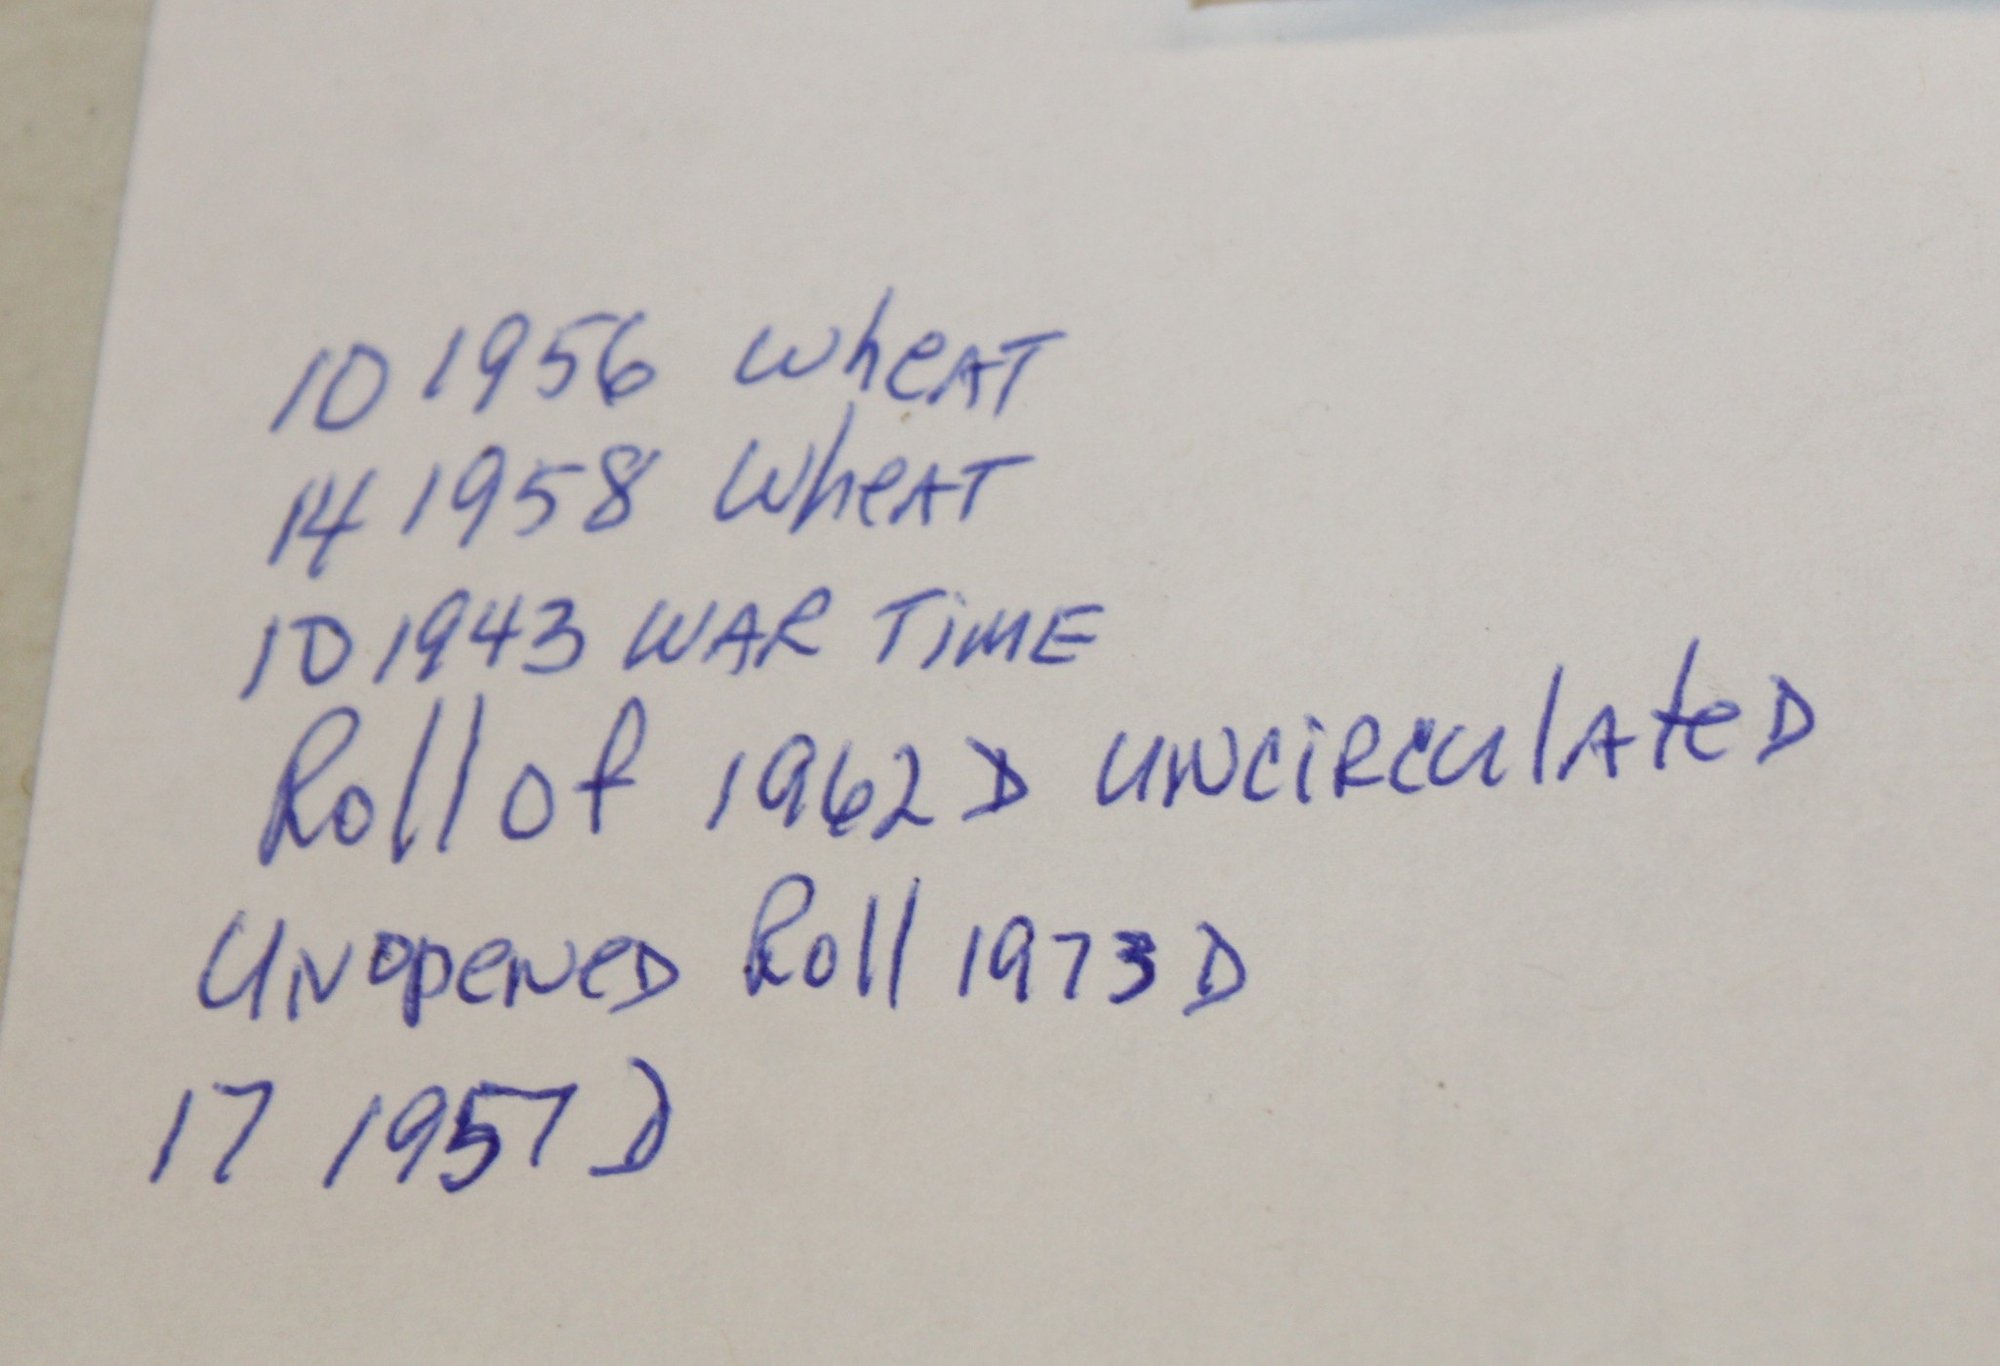 10 1956 wheAT
14 1958 WheAT
10 1943 WAR TiME
Roll of 1962 D UNCiRCulAteD
UNopeNeD Roll 1973 D
17 1957 D